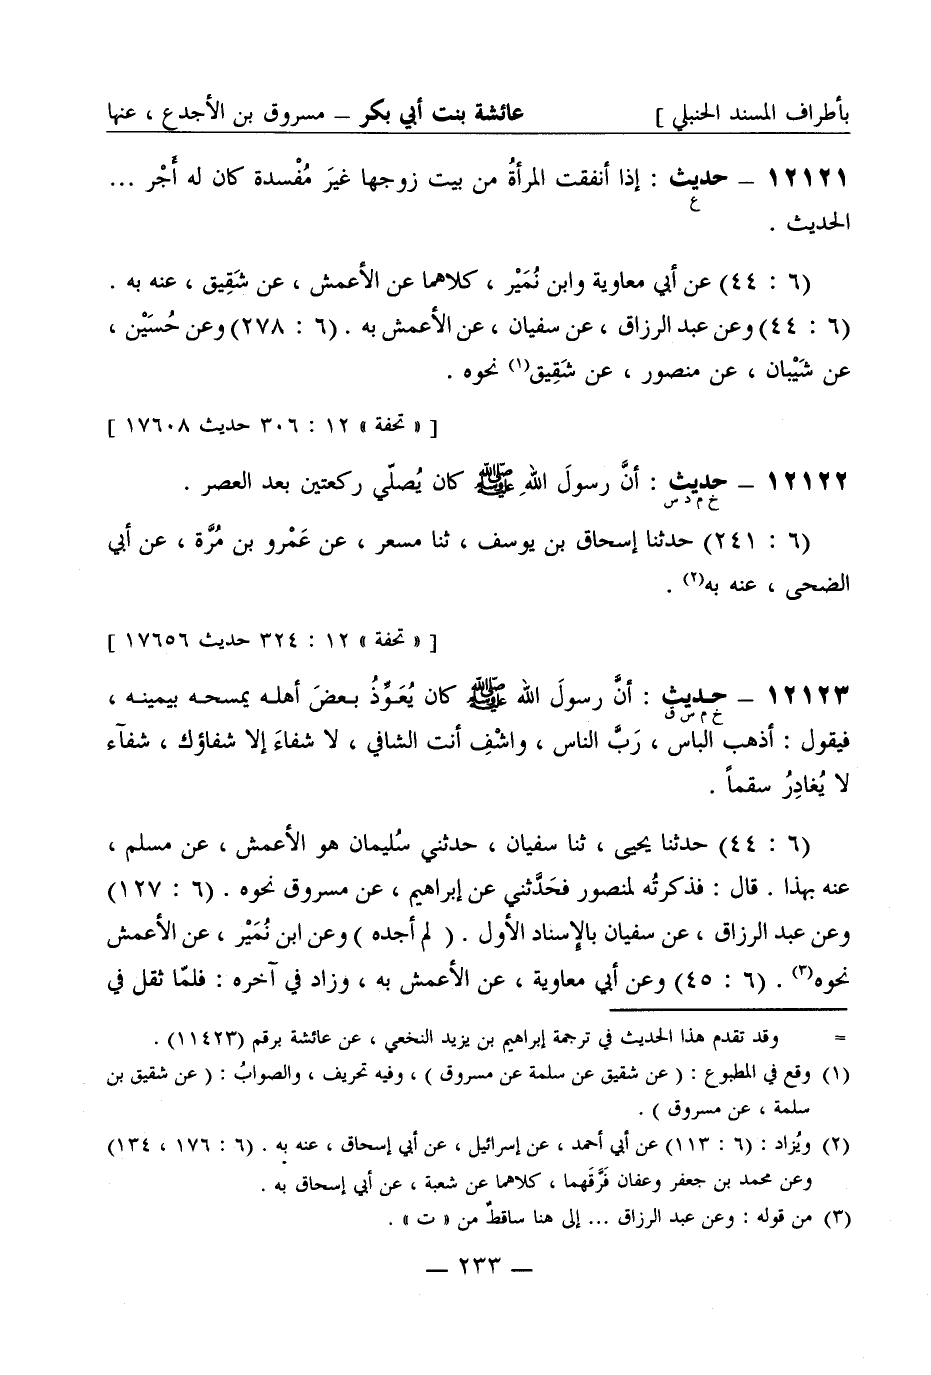 بأطراف المسند الحنبلي ] عائشة بنت أبي بكر – مسروق بن الأجدع ، عنها
١٢١٢١ – حديث : إذا أنفقت المرأةُ من بيت زوجها غيرَ مُفْسدة كان له أَجْر ...
ع
الحديث .
(٦ : ٤٤) عن أبي معاوية وابن نُمَيْر ، كلاهما عن الأعمش ، عن شَقِيق ، عنه به .
(٦ : ٤٤) وعن عبد الرزاق ، عن سفيان ، عن الأعمش به . (٦ : ٢٧٨) وعن حُسَيْن ،
عن شَيْبان ، عن منصور ، عن شَقِيق(١) نحوه .
[ « تحفة » ١٢ : ٣٠٦ حديث ١٧٦٠٨ ]
١٢١٢٢ – حديث : أنَّ رسولَ اللهِ ﷺ كان يُصلّي ركعتين بعد العصر .
خ م د س
(٦ : ٢٤١) حدثنا إسحاق بن يوسف ، ثنا مسعر ، عن عَمْرو بن مُرَّة ، عن أبي
الضحى ، عنه به(٢) .
[ « تحفة » ١٢ : ٣٢٤ حديث ١٧٦٥٦ ]
١٢١٢٣ – حديث : أنَّ رسولَ الله ﷺ كان يُعَوِّذُ بعضَ أهله يمسحه بيمينه ،
خ م س ق
فيقول : أذهب الباس ، رَبَّ الناس ، واشْفِ أنت الشافي ، لا شفاءَ إلا شفاؤك ، شفآء
لا يُغادِرُ سقماً .
(٦ : ٤٤) حدثنا يحيى ، ثنا سفيان ، حدثني سُليمان هو الأعمش ، عن مسلم ،
عنه بهذا . قال : فذكرتُه لمنصور فحَدَّثني عن إبراهيم ، عن مسروق نحوه . (٦ : ١٢٧)
وعن عبد الرزاق ، عن سفيان بالإسناد الأول . ( لم أجده ) وعن ابن نُمَيْر ، عن الأعمش
نحوه(٣) . (٦ : ٤٥) وعن أبي معاوية ، عن الأعمش به ، وزاد في آخره : فلمّا ثقل في
= وقد تقدم هذا الحديث في ترجمة إبراهيم بن يزيد النخعي ، عن عائشة برقم (١١٤٢٣) .
(١) وقع في المطبوع : ( عن شقيق عن سلمة عن مسروق ) ، وفيه تحريف ، والصوابُ : ( عن شقيق بن
سلمة ، عن مسروق ) .
(٢) ويُزاد : (٦ : ١١٣) عن أبي أحمد ، عن إسرائيل ، عن أبي إسحاق ، عنه به . (٦ : ١٧٦ ، ١٣٤)
وعن محمد بن جعفر وعفان فَرَّقَهما ، كلاهما عن شعبة ، عن أبي إسحاق به .
(٣) من قوله : وعن عبد الرزاق ... إلى هنا ساقطٌ من « ت » .
– ٢٣٣ –